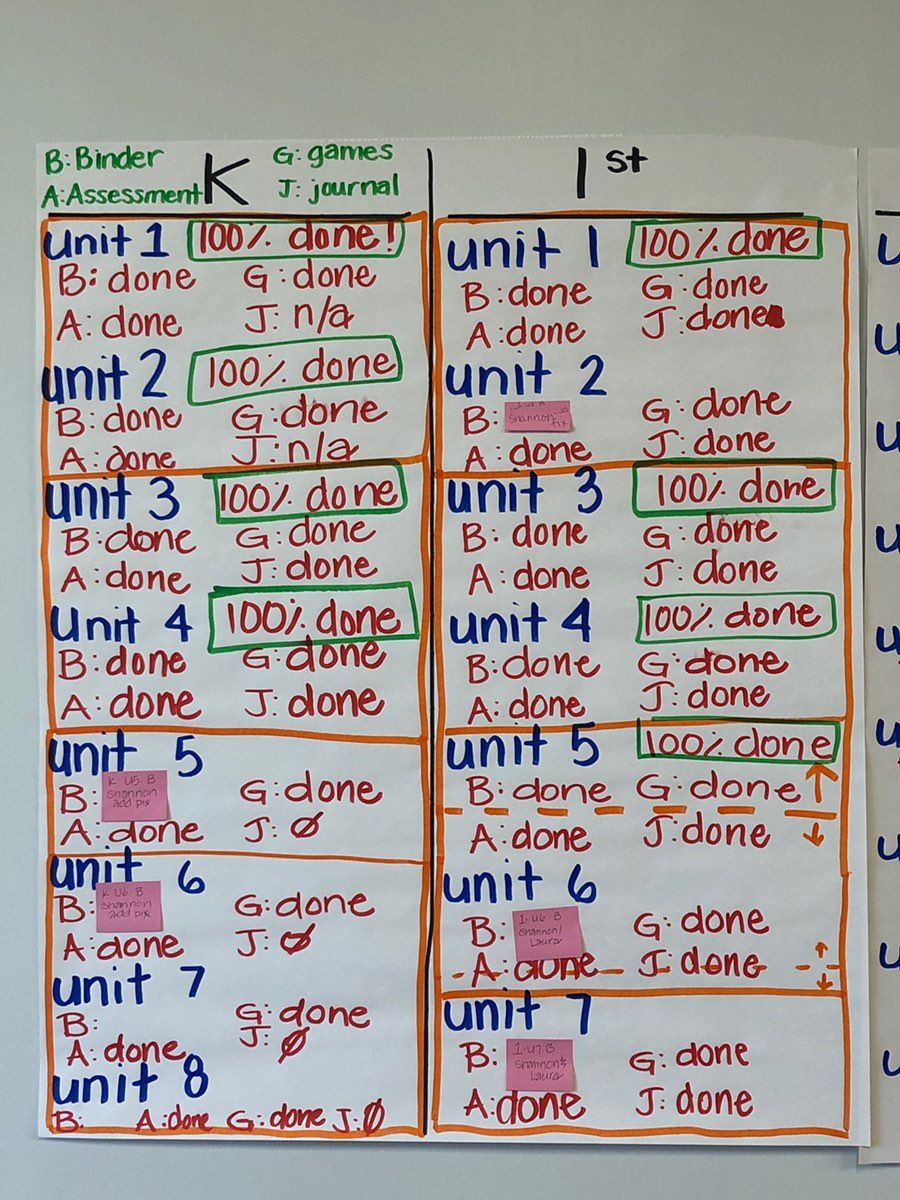 B: Binder G: games
A: Assessment K J: journal
unit 1 100% done!
B: done G: done
A: done J: n/a
unit 2 100% done
B: done G: done
A: done J: n/a
unit 3 100% done
B: done G: done
A: done J: done
unit 4 100% done
B: done G: done
A: done J: done
unit 5
K U5 B
Shannon
add pix
B: G: done
A: done J: Ø
unit 6
K U6 B
Shannon
add pix
B: G: done
A: done J: Ø
unit 7
B: G: done
A: done J: Ø
unit 8
B: A: done G: done J: Ø
1st
unit 1 100% done
B: done G: done
A: done J: done
unit 2
B: Shannon G: done
A: done J: done
unit 3 100% done
B: done G: done
A: done J: done
unit 4 100% done
B: done G: done
A: done J: done
unit 5 100% done
B: done G: done
A: done J: done
unit 6
1. U6. B
Shannon/
Laura
B: G: done
A: done J: done
unit 7
1. U7 B
Shannon &
Laura
B: G: done
A: done J: done